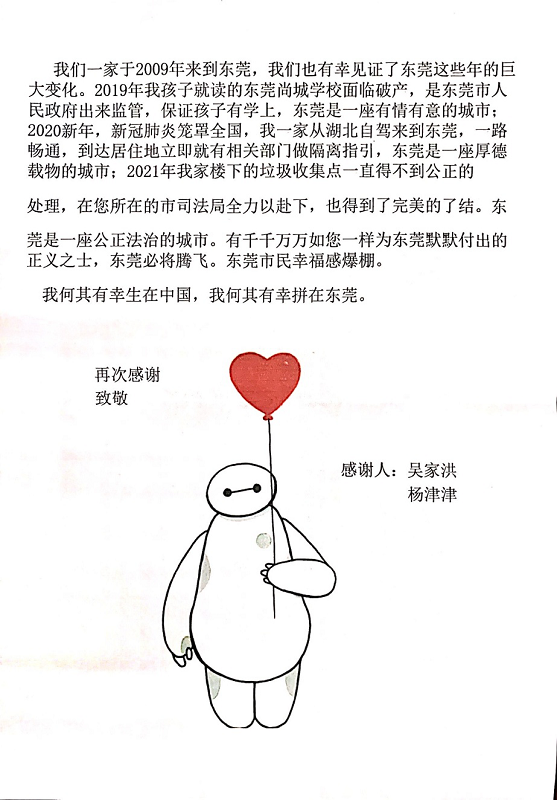 我们一家于2009年来到东莞，我们也有幸见证了东莞这些年的巨
大变化。2019年我孩子就读的东莞尚城学校面临破产，是东莞市人
民政府出来监管，保证孩子有学上，东莞是一座有情有意的城市；
2020新年，新冠肺炎笼罩全国，我一家从湖北自驾来到东莞，一路
畅通，到达居住地立即就有相关部门做隔离指引，东莞是一座厚德
载物的城市；2021年我家楼下的垃圾收集点一直得不到公正的
处理，在您所在的市司法局全力以赴下，也得到了完美的了结。东
莞是一座公正法治的城市。有千千万万如您一样为东莞默默付出的
正义之士，东莞必将腾飞。东莞市民幸福感爆棚。
我何其有幸生在中国，我何其有幸拼在东莞。
再次感谢
致敬
感谢人：吴家洪
杨津津